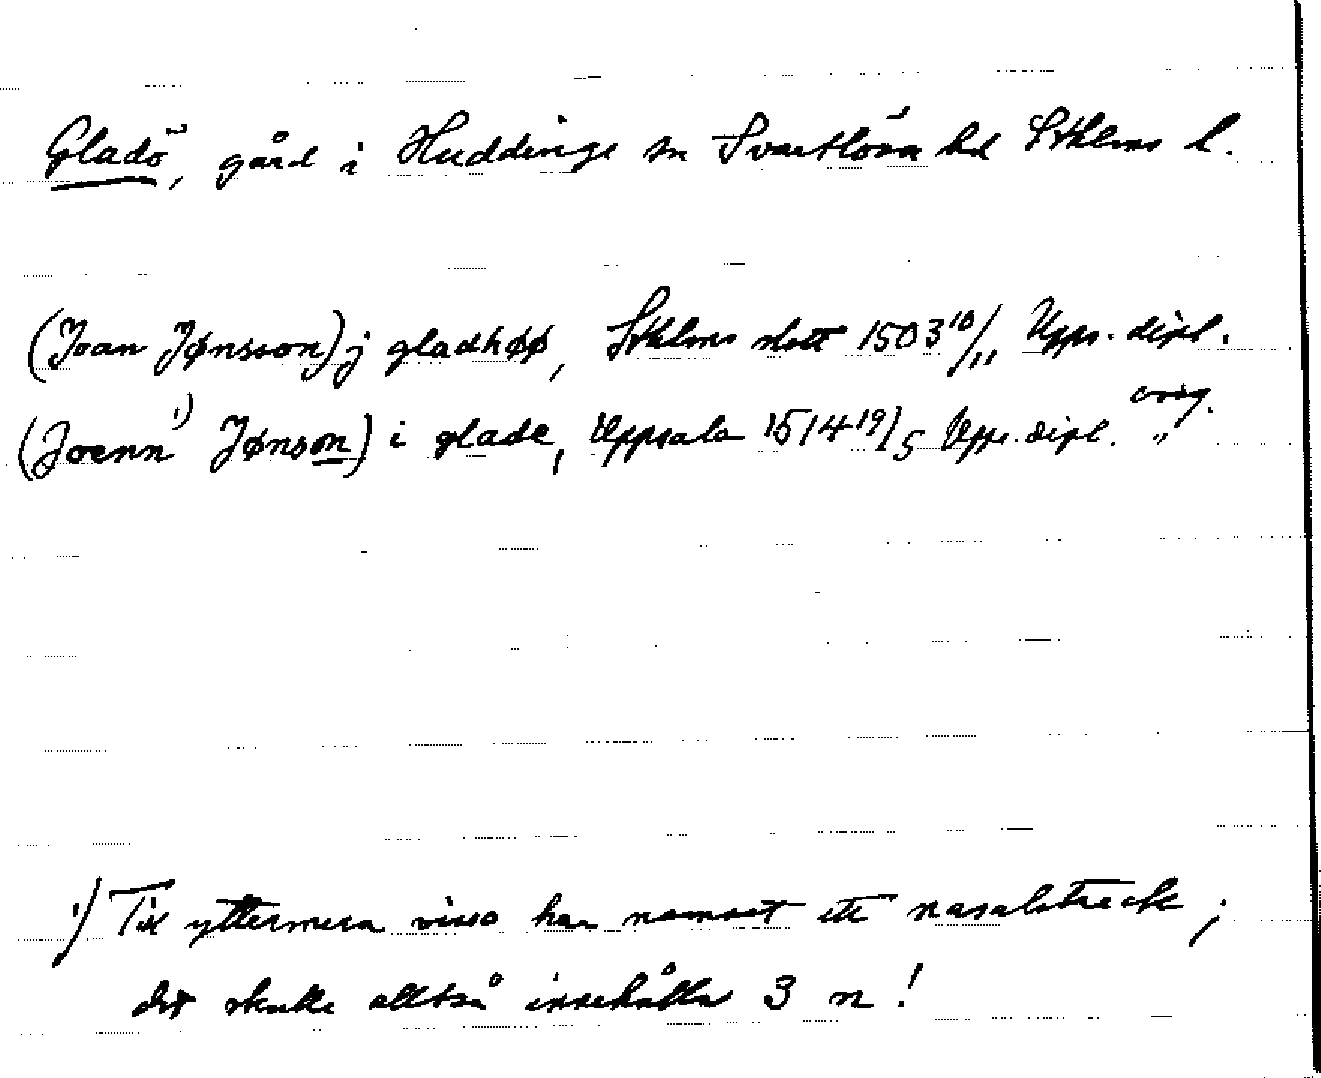 Gladö, gård i Huddinge sn Svartlösa hd Sthlms l.
(Joan Jønsson) j gladhøø, Sthlms slott 1503 10/11 Upps. dipl.
(Joenn 1) Jønson) i glade, Uppsala 1514 19/5 Upps. dipl. orig. "
1) Till yttermera visso har namnet ett nasalstreck;
det skulle alltså innehålla 3 n!